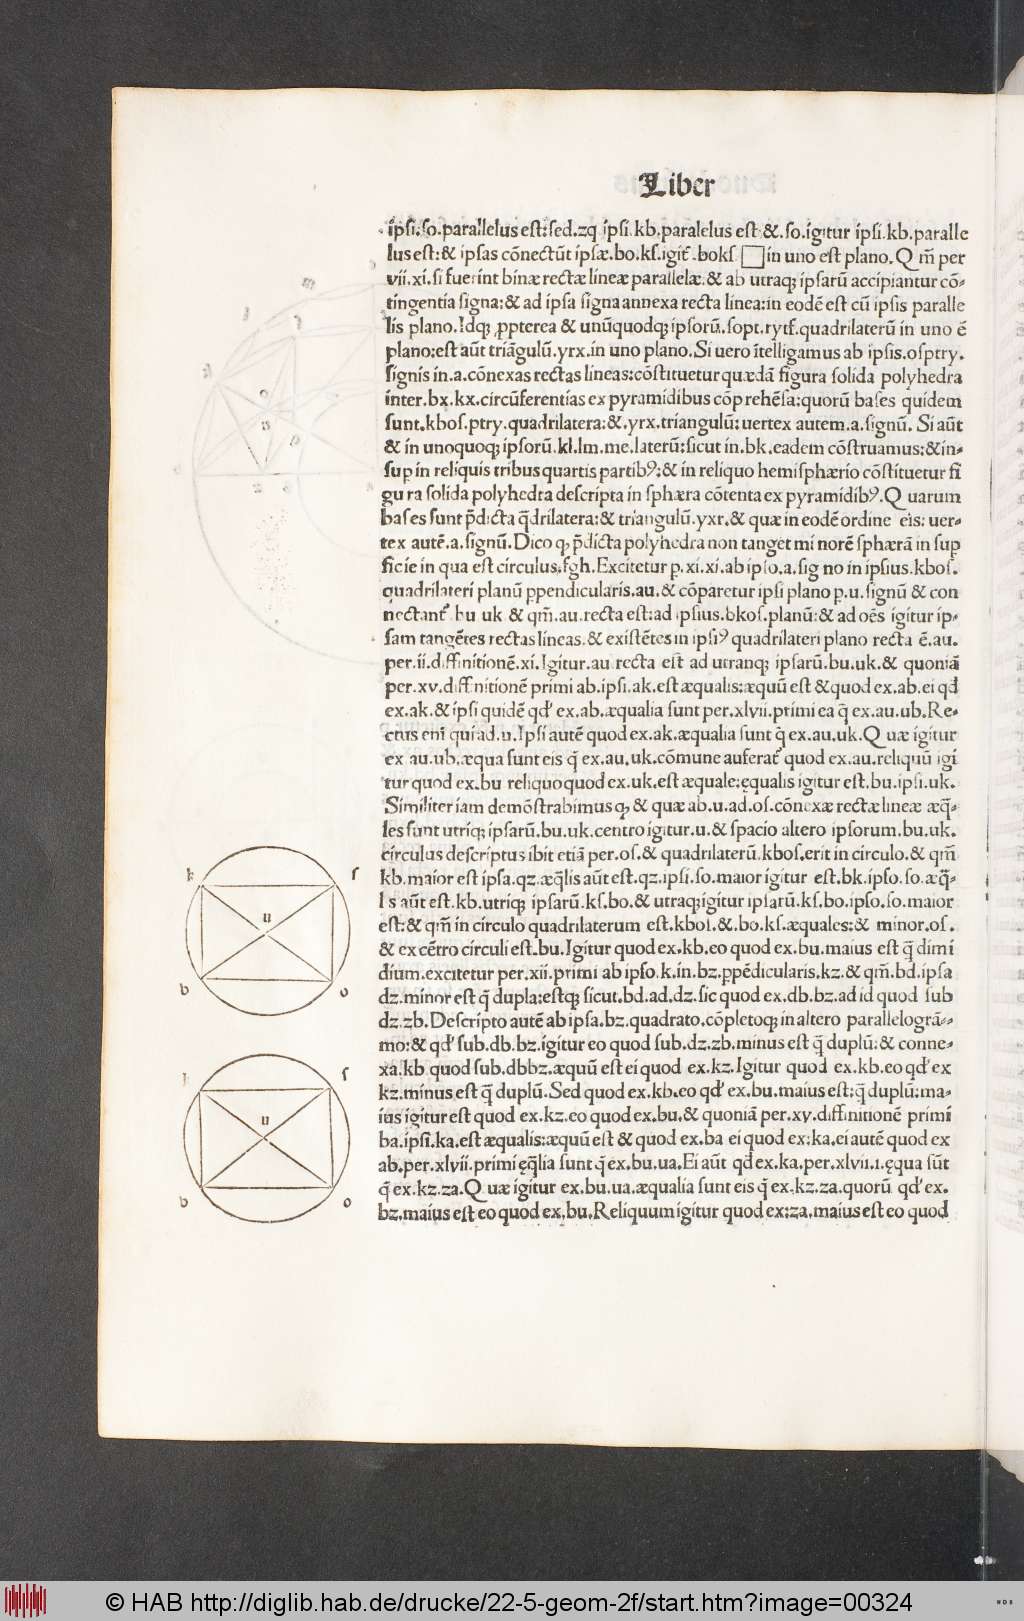 Liber
ipſi.ſo.parallelus eſt:ſed.zq ipſi.kb.paralelus eſt &.ſo.igitur ipſi.kb.paralle
lus eſt:& ipſas cõnectũt ipſæ.bo.kſ.igit᷑.bokſ □ in uno eſt plano.Q m̃ per
vii.xi.ſi fuerint binæ rectæ lineæ parallelæ.& ab utraq; ipſarũ accipiantur cõ-
tingentia ſigna:& ad ipſa ſigna annexa recta linea:in eodẽ eſt cũ ipſis paralle
lis plano.Idq; ꝓpterea & unũquodq; ipſorũ.ſopt.rytſ.quadrilaterũ in uno ẽ
plano:eſt aũt triãgulũ.yrx.in uno plano.Si uero ĩtelligamus ab ipſis.oſptry.
ſignis in.a.cõnexas rectas lineas:cõſtituetur quædã figura ſolida polyhedra
inter.bx.kx.circũferentias ex pyramidibus cõprehẽſa:quorũ baſes quidem
ſunt.kboſ.ptry.quadrilatera:&.yrx.triangulũ: uertex autem.a.ſignũ. Si aũt
& in unoquoq; ipſorũ.kl.lm.me.laterũ:ſicut in.bk.eadem cõſtruamus:& in-
ſup̱ in reliquis tribus quartis partibꝰ:& in reliquo hemiſphærio cõſtituetur fi
gu ra ſolida polyhedra deſcripta in ſphæra cõtenta ex pyramidibꝰ.Q uarum
baſes ſunt p̃dicta q̃drilatera:& triangulũ.yxr.& quæ in eodẽ ordine eis: uer-
tex autẽ.a.ſignũ.Dico ꝙ p̃dicta polyhedra non tanget mi norẽ ſphærã in ſup̱
ficie in qua eſt circulus.fgh.Excitetur p̱.xi.xi.ab ipſo.a.ſig no in ipſius.kboſ.
quadrilateri planũ p̱pendicularis.au.& cõparetur ipſi plano p̱.u.ſignũ & con
nectant᷑ bu uk & qm̃.au.recta eſt:ad ipſius.bkoſ.planũ:& ad oẽs igitur ip-
ſam tangẽtes rectas lineas.& exiſtẽtes in ipſiꝰ quadrilateri plano recta ẽ.au.
per.ii.diffinitionẽ.xi.Igitur.au recta eſt ad utranq; ipſarũ.bu.uk.& quoniã
per.xv.diffinitionẽ primi ab.ipſi.ak.eſt æqualis:æquũ eſt & quod ex.ab.ei qđ
ex.ak.& ipſi quidẽ qđ ex.ab.æqualia ſunt per.xlvii.primi ea q̃ ex.au.ub.Re-
ctus eni qui ad.u.Ipſi autẽ quod ex.ak.æqualia ſunt q̃ ex.au.uk.Q uæ igitur
ex au.ub.æqua ſunt eis q̃ ex.au.uk.cõmune auferat᷑ quod ex.au.reliquũ igi
tur quod ex.bu reliquo quod ex.uk.eſt æquale:ęqualis igitur eſt.bu.ipſi.uk.
Similiter iam demõſtrabimus ꝙ & quæ ab.u.ad.oſ.cõnexæ rectæ lineæ æq̃-
les ſunt utriq; ipſarũ.bu.uk.centro igitur.u.& ſpacio altero ipſorum.bu.uk.
circulus deſcriptus ibit etiã per.oſ.& quadrilaterũ.kboſ.erit in circulo.& qm̃
kb.maior eſt ipſa.qz.æq̃lis aũt eſt.qz.ipſi.ſo.maior igitur eſt.bk.ipſo.ſo.æq̃-
l s aũt eſt.kb.utriq; ipſarũ.kſ.bo.& utraq;igitur ipſarũ.kſ.bo.ipſo.ſo.maior
eſt:& qm̃ in circulo quadrilaterum eſt.kboſ.&.bo.kſ.æquales:& minor.oſ.
& ex cẽtro circuli eſt.bu.Igitur quod ex.kb.eo quod ex.bu.maius eſt q̃ dimi
dium.excitetur per.xii.primi ab ipſo.k.in.bz.p̱pẽdicularis.kz.& qm̃.bd.ipſa
dz.minor eſt q̃ dupla:eſtq; ſicut.bd.ad.dz.ſic quod ex.db.bz.ad id quod ſub
dz.zb.Deſcripto autẽ ab ipſa.bz.quadrato.cõpletoq; in altero parallelogrã-
mo:& qđ ſub.db.bz.igitur eo quod ſub.dz.zb.minus eſt q̃ duplũ:& conne-
xa.kb quod ſub.dbbz.æquũ eſt ei quod ex.kz.Igitur quod ex.kb.eo qđ ex
kz.minus eſt q̃ duplũ. Sed quod ex.kb.eo qđ ex.bu.maius eſt:q̃ duplũ:ma-
ius igitur eſt quod ex.kz.eo quod ex.bu.& quoniã per.xv.diffinitionẽ primi
ba.ipſi.ka.eſt æqualis:æquũ eſt & quod ex.ba ei quod ex:ka.ei autẽ quod ex
ab.per.xlvii.primi ęq̃lia ſunt q̃ ex.bu.ua.Ei aũt qđ ex.ka.per.xlvii.1.ęqua ſũt
q̃ ex.kz.za.Q uæ igitur ex.bu.ua.æqualia ſunt eis q̃ ex.kz.za.quorũ qđ ex.
bz.maius eſt eo quod ex.bu.Reliquum igitur quod ex:za.maius eſt eo quod
k ſ
u
b o
k ſ
u
b o
© HAB http://diglib.hab.de/drucke/22-5-geom-2f/start.htm?image=00324